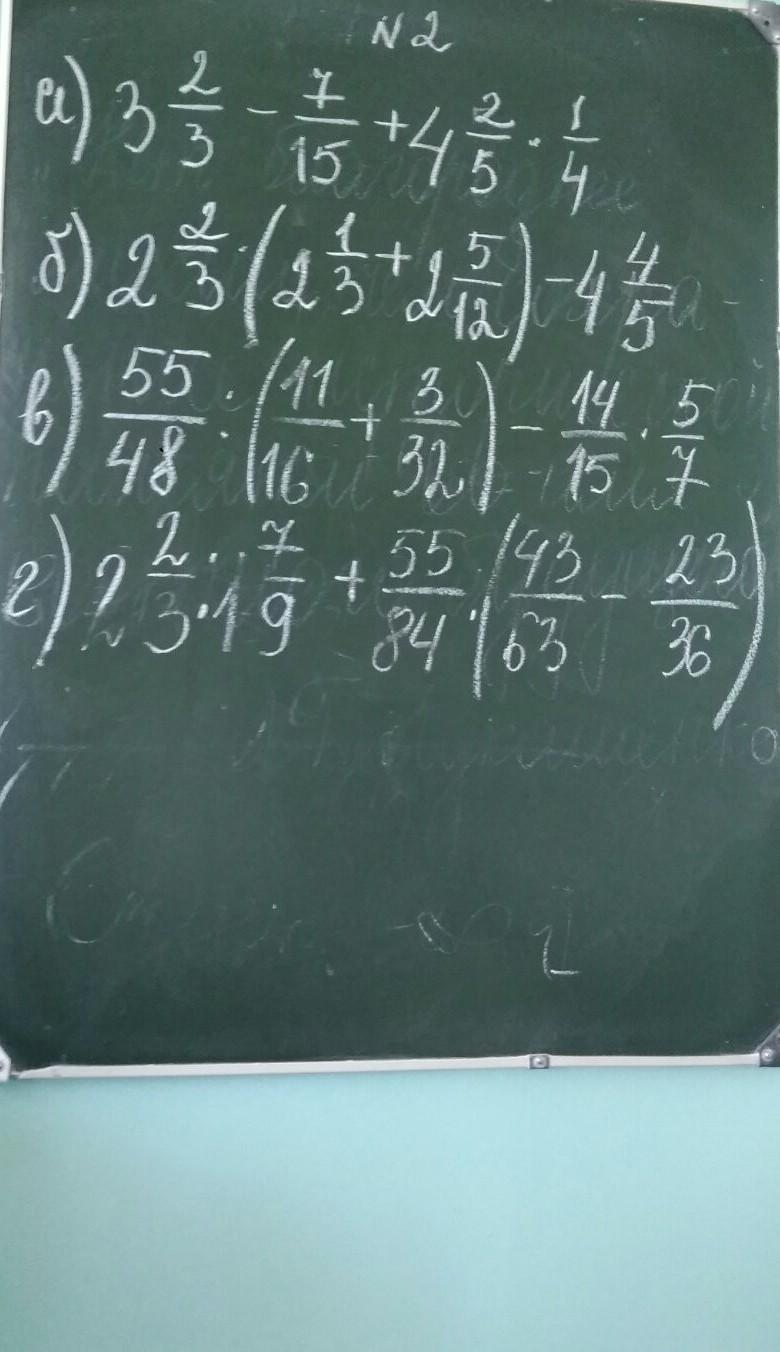 N2
а) 3 2/3 - 7/15 + 4 2/5 · 1/4
б) 2 2/3 · (2 1/3 + 2 5/12) - 4 4/5
в) 55/48 : (11/16 + 3/32) - 14/15 · 5/7
г) 2 2/3 : 1 7/9 + 55/84 · (43/63 - 23/36)